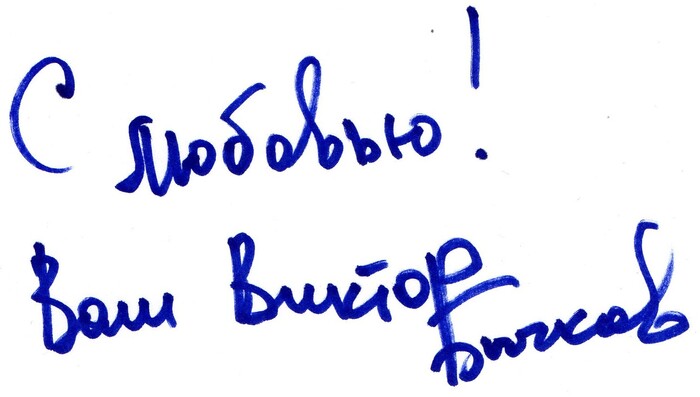 С любовью!
Ваш Виктор
Бычков